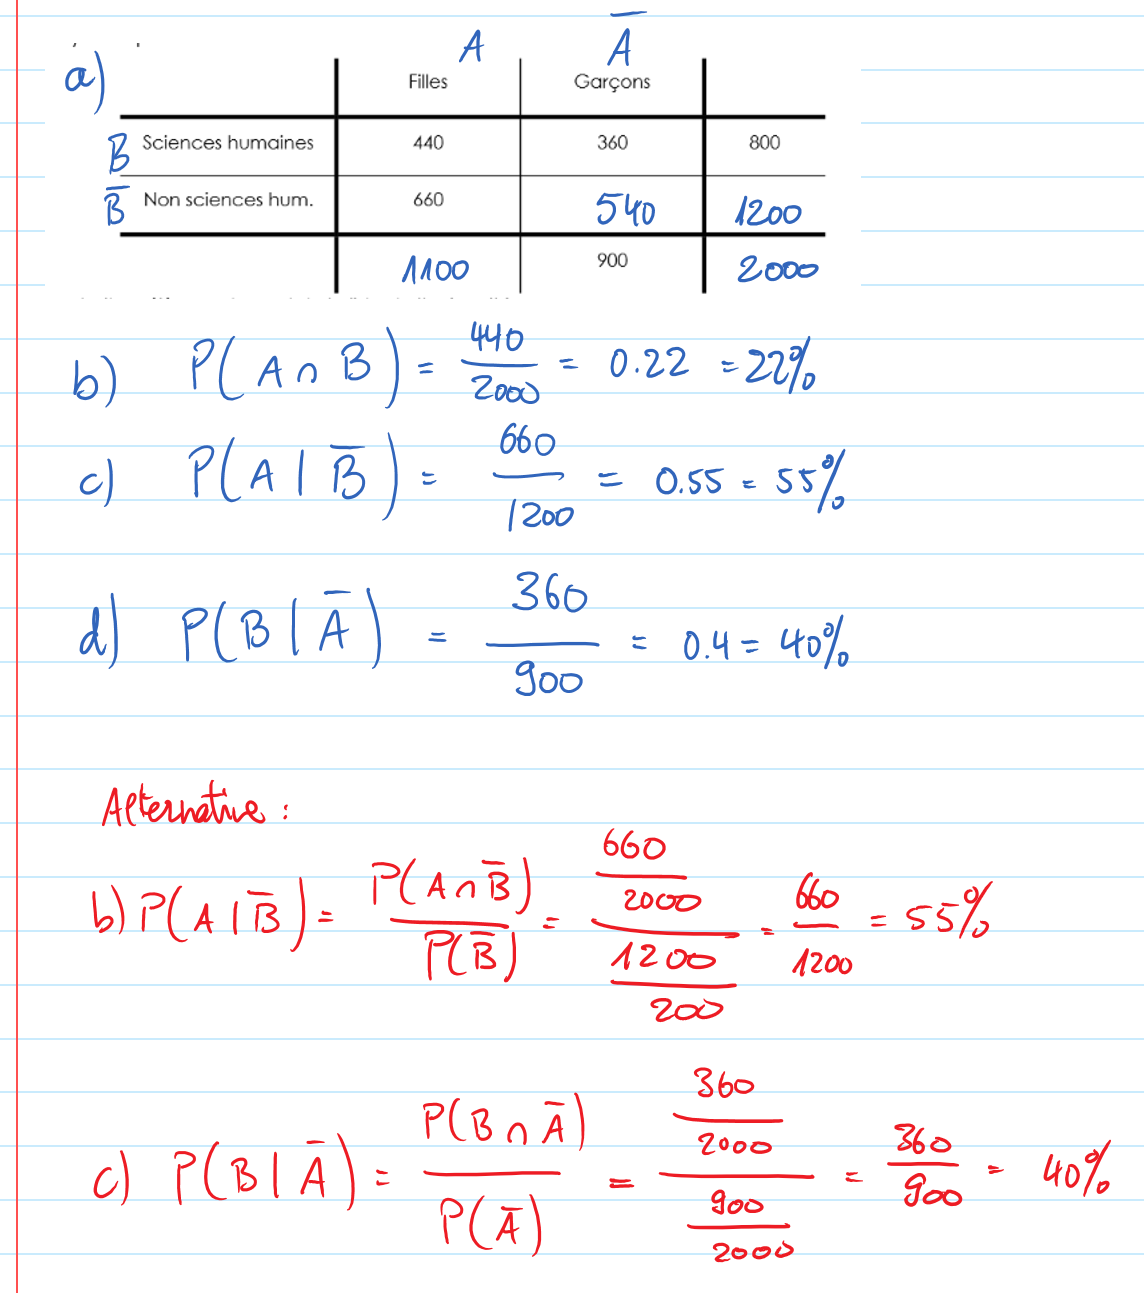 a) A A̅
Filles Garçons
B Sciences humaines 440 360 800
B̅ Non sciences hum. 660 540 1200
1100 900 2000
b) P(A∩B) = 440/2000 = 0.22 = 22%
c) P(A|B̅) = 660/1200 = 0.55 = 55%
d) P(B|A̅) = 360/900 = 0.4 = 40%
Alternative :
b) P(A|B̅) = P(A∩B̅)/P(B̅) = (660/2000)/(1200/200) = 660/1200 = 55%
c) P(B|A̅) = P(B∩A̅)/P(A̅) = (360/2000)/(900/2000) = 360/900 = 40%